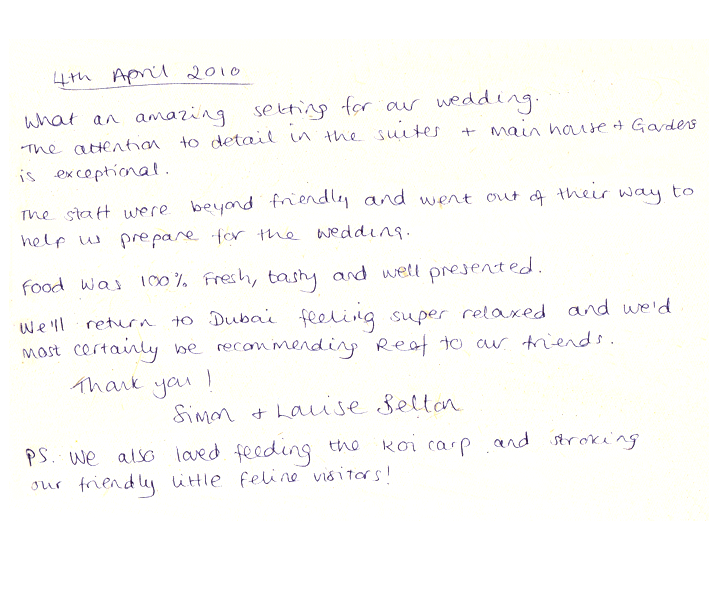 4th April 2010
What an amazing setting for our wedding.
The attention to detail in the suites + main house + Gardens
is exceptional.
The staff were beyond friendly and went out of their way to
help us prepare for the wedding.
Food was 100% Fresh, tasty and well presented.
We'll return to Dubai feeling super relaxed and we'd
most certainly be recommending Reef to our friends.
Thank you!
Simon + Louise Belton
PS. We also loved feeding the Koi carp and stroking
our friendly little feline visitors!